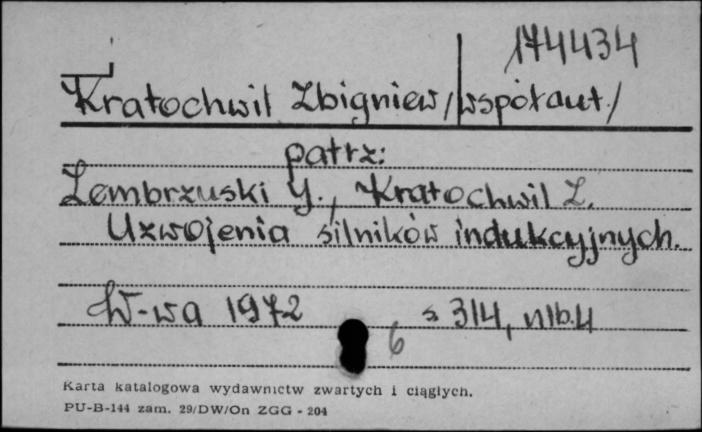 174434
Kratochwil Zbigniew /współaut./
patrz:
Zembrzuski J., Kratochwil Z.
Uzwojenia silników indukcyjnych.
W-wa 1972 s 314, nlb.4
6
Karta katalogowa wydawnictw zwartych i ciągłych.
PU-B-144 zam. 29/DW/On ZGG - 204